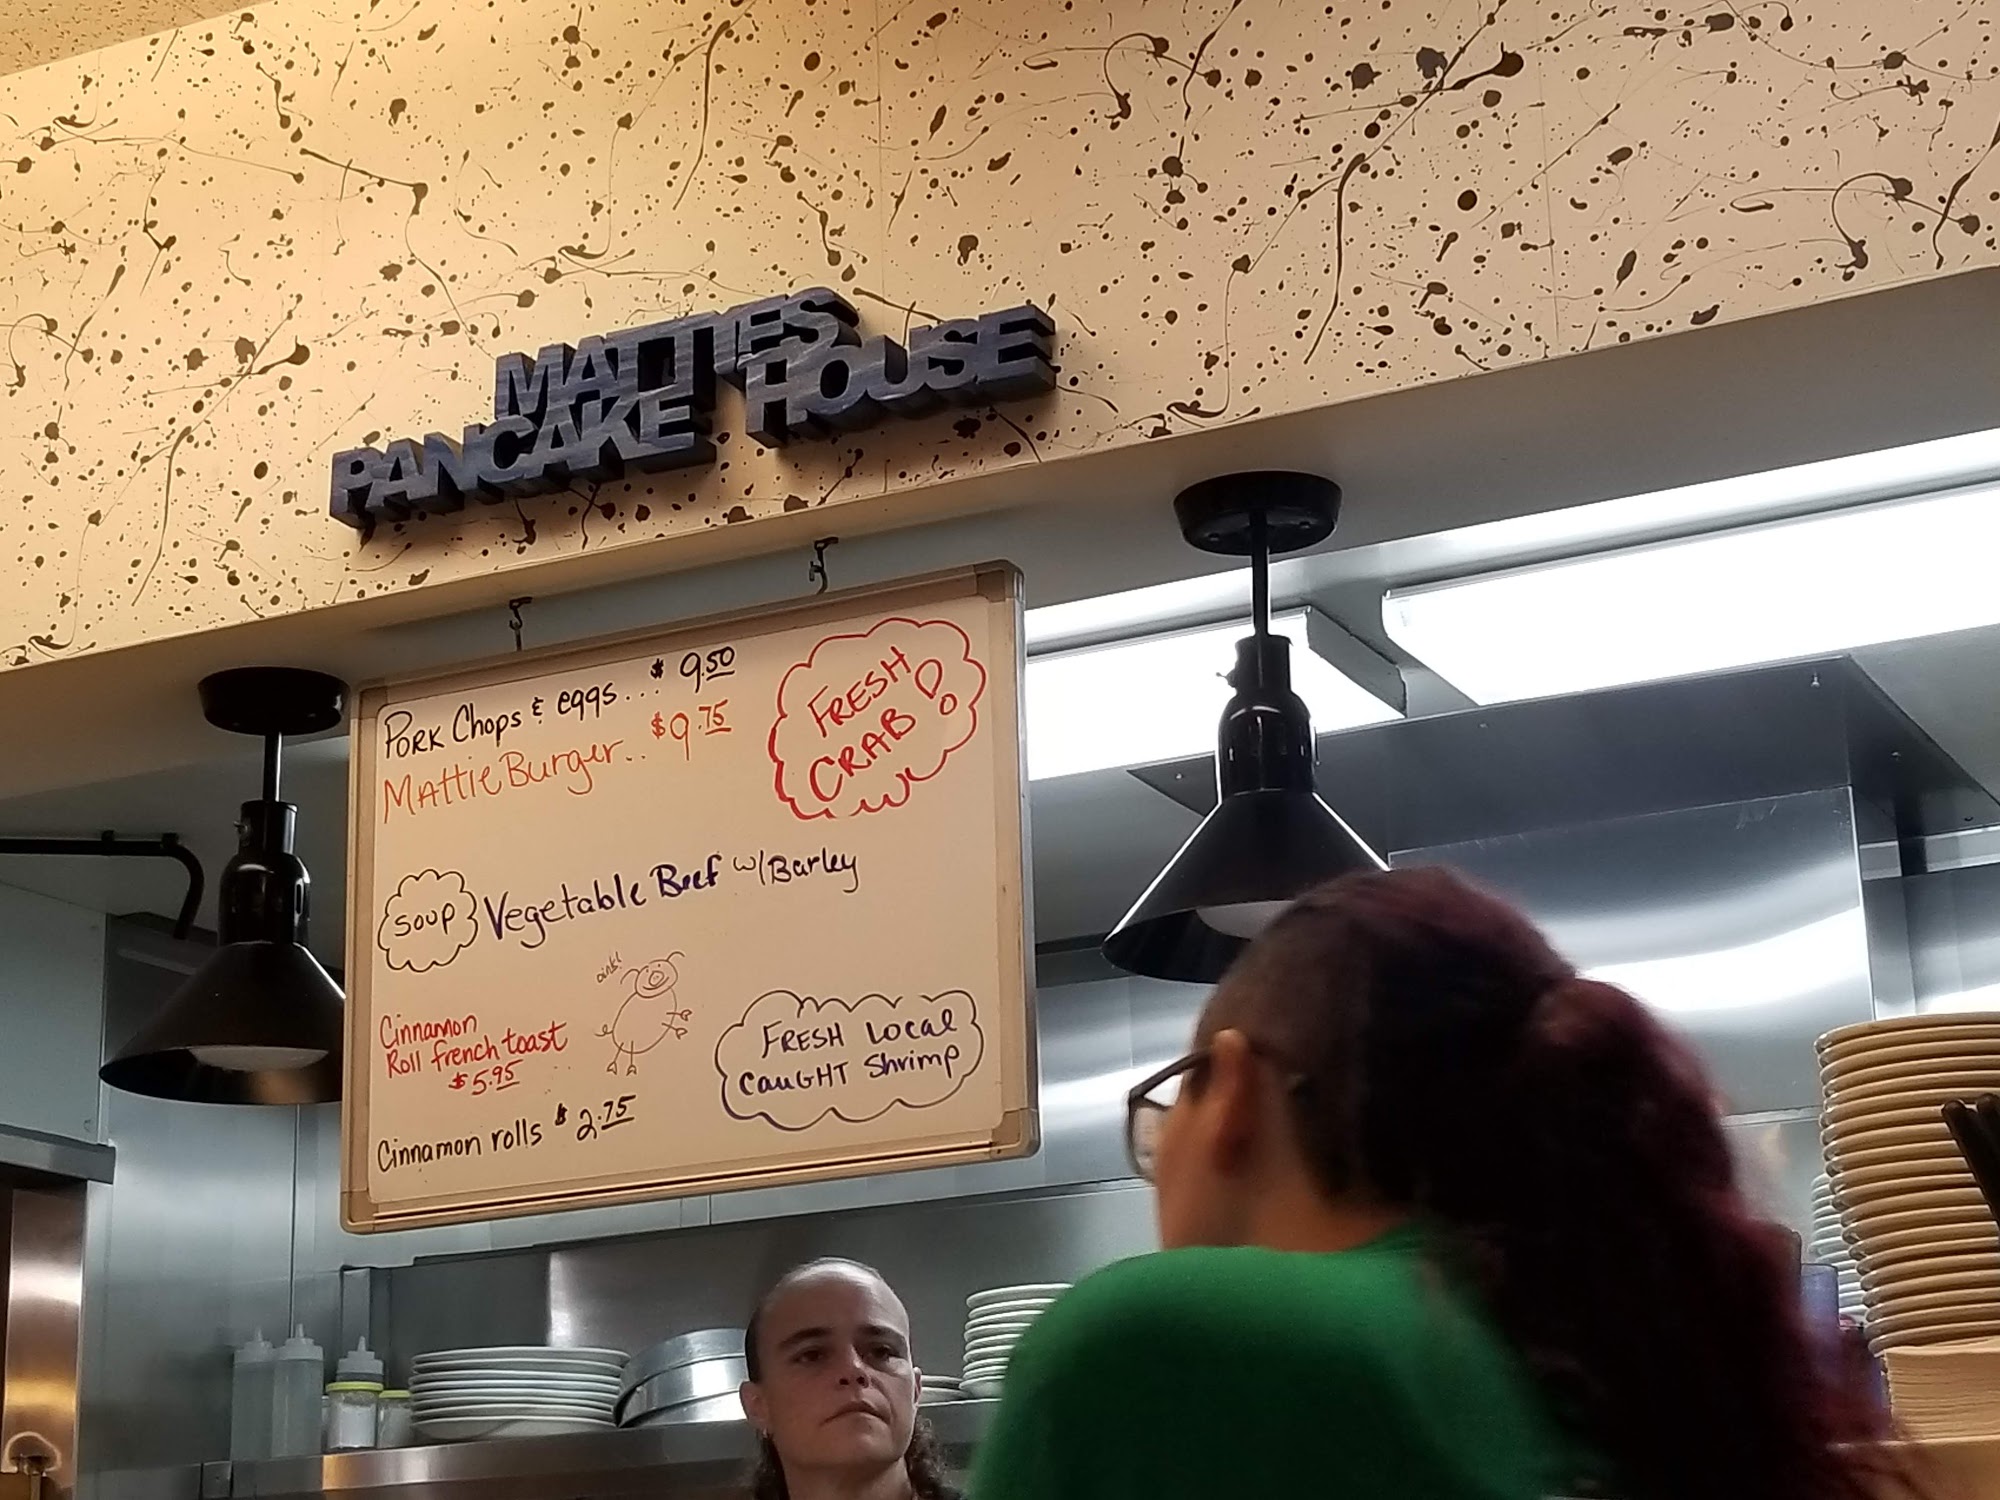 MATTIES
PANCAKE HOUSE
PORK Chops & eggs... $9.50
MAttie Burger.. $9.75
FRESH
CRAB!
soup
Vegetable Beef w/Barley
oink!
Cinnamon
Roll french toast
$5.95
FRESH Local
CauGHT Shrimp
Cinnamon rolls $2.75